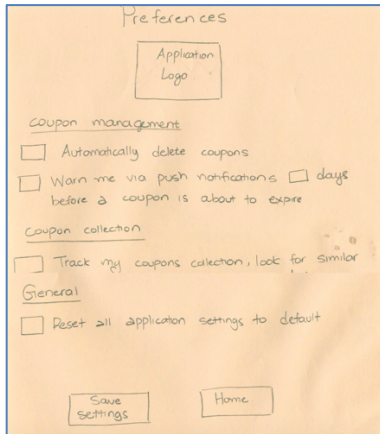 Preferences
Application
Logo
Coupon management
Automatically delete coupons
Warn me via push notifications days
before a coupon is about to expire
Coupon collection
Track my coupons collection, look for similar
General
Reset all application settings to default
Save
settings
Home